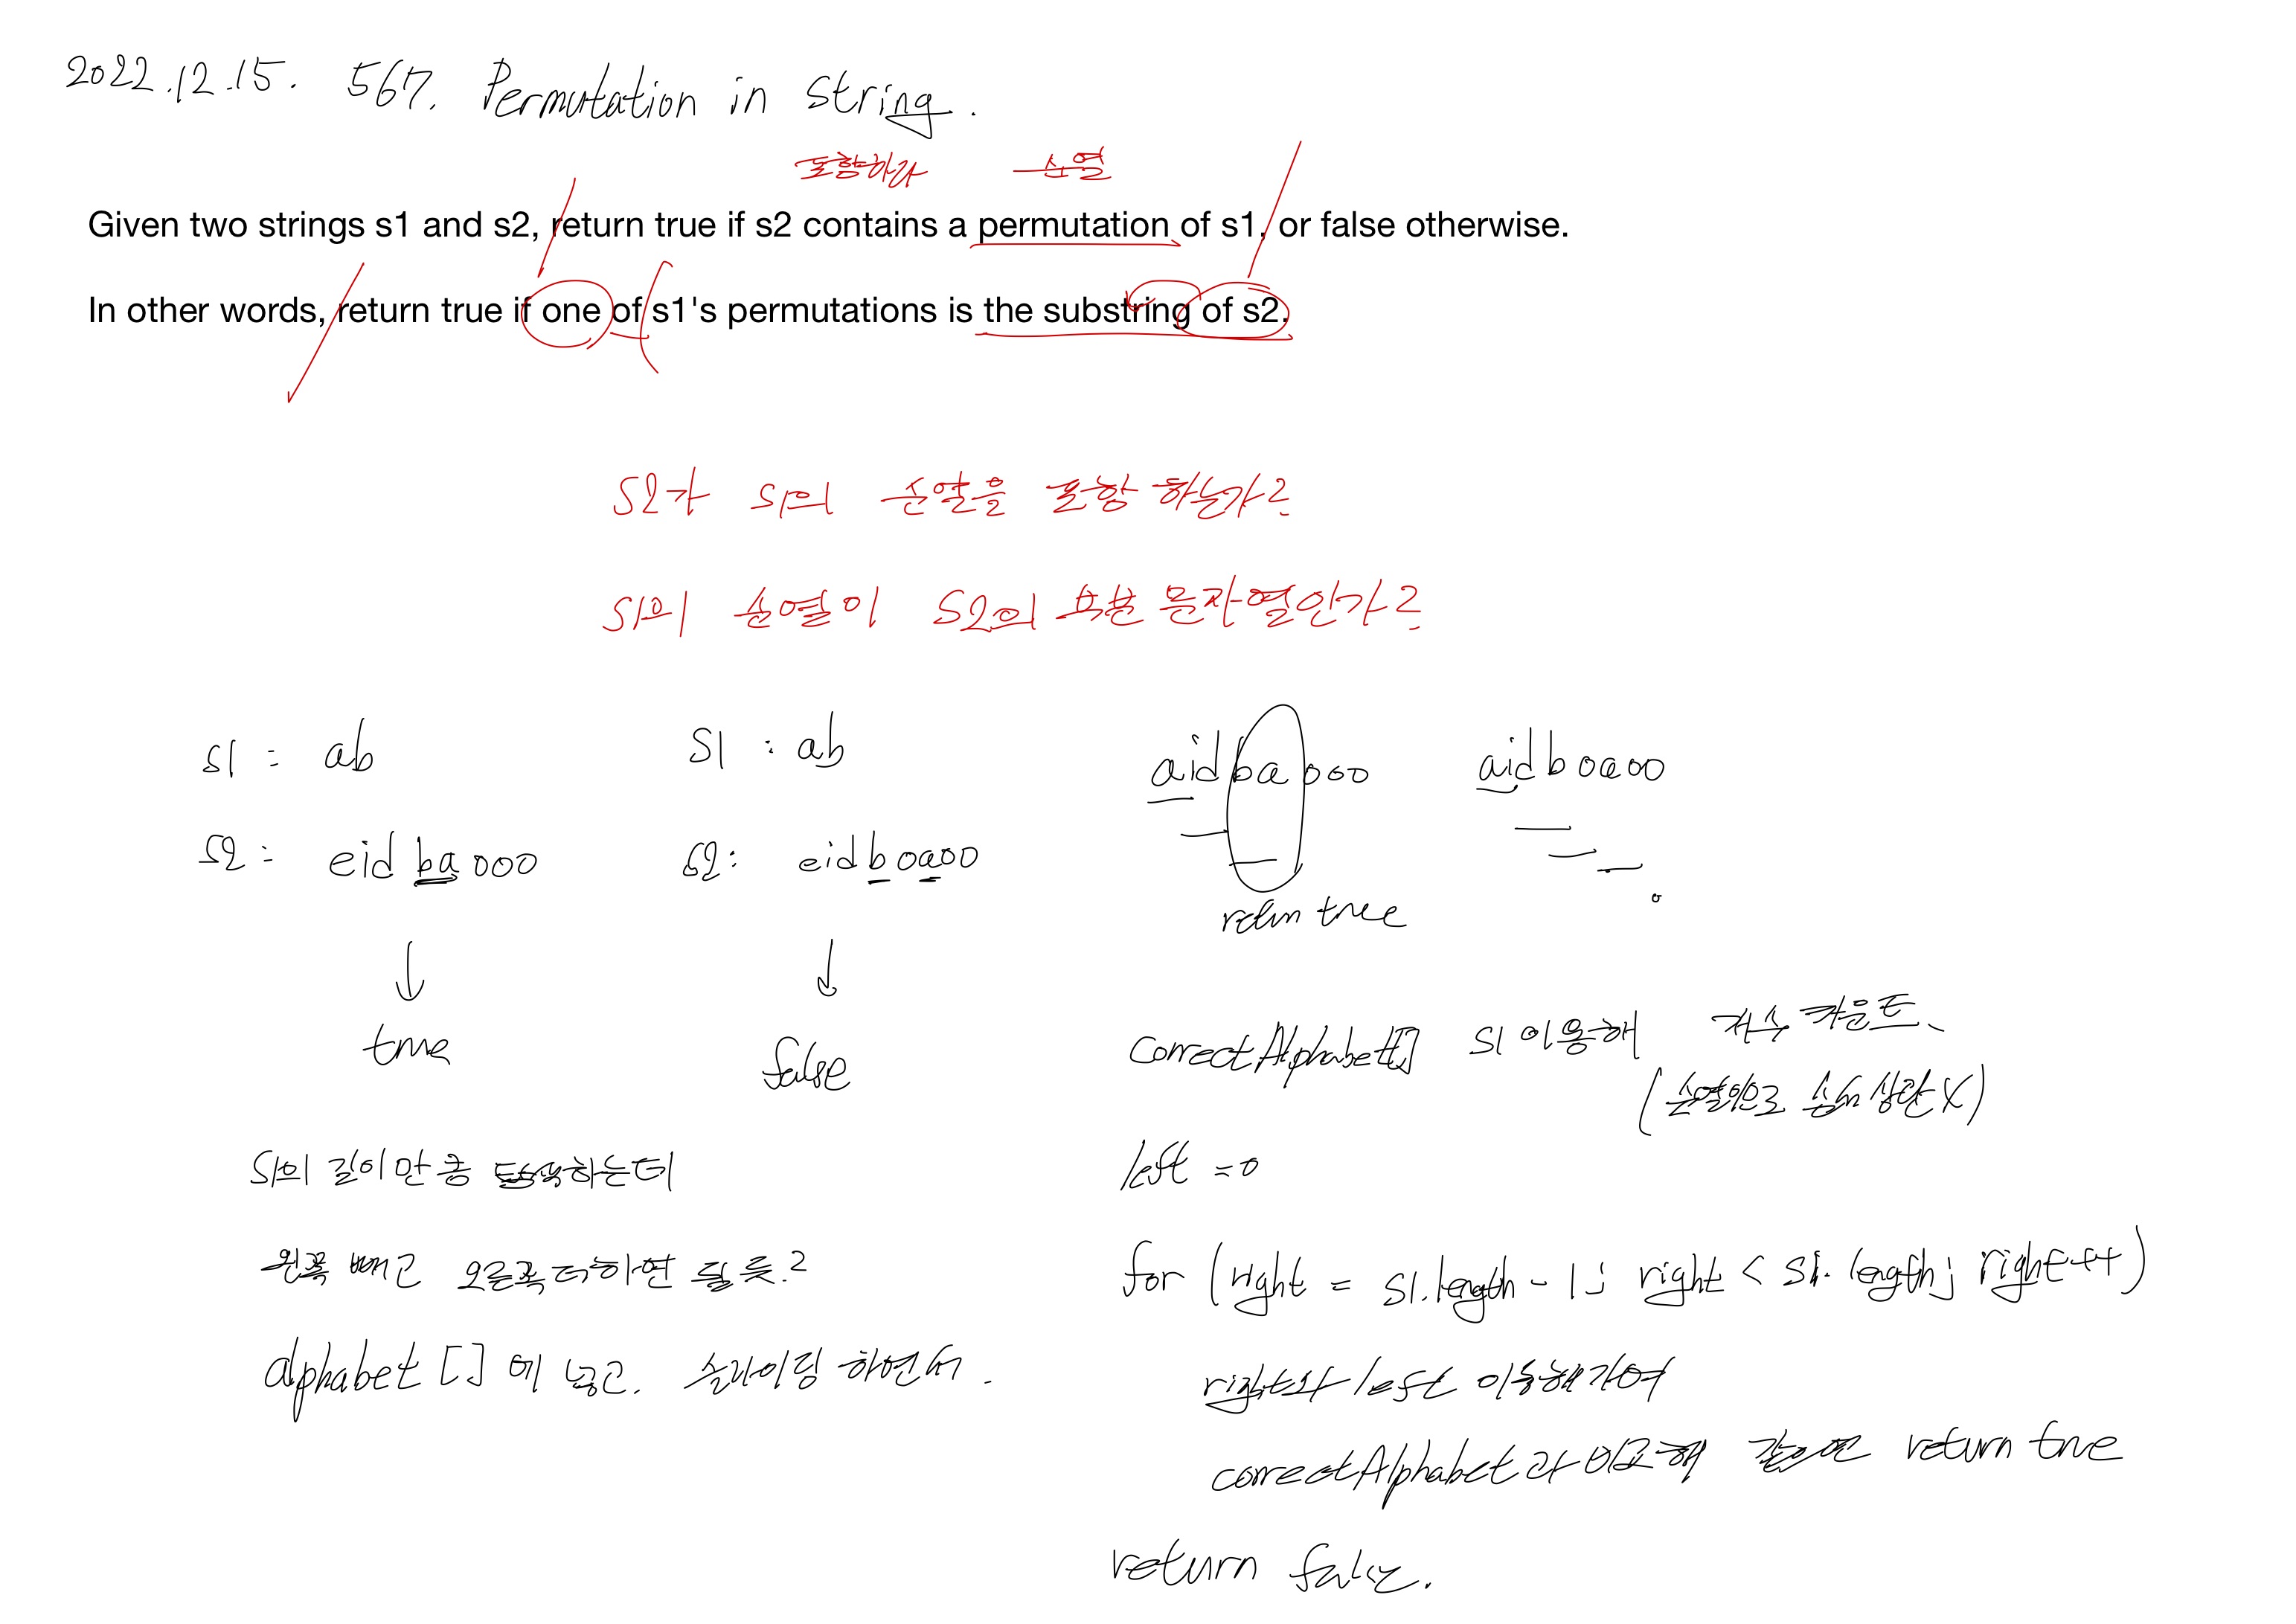 2022.12.15. 567. Permutation in String.
포함하다 순열
Given two strings s1 and s2, return true if s2 contains a permutation of s1, or false otherwise.
In other words, return true if one of s1's permutations is the substring of s2.
S2가 S1의 순열을 포함 하는가?
S1의 순열이 S2의 부분 문자열인가?
S1 : ab
S2 : eidbaooo
↓
true
S1 : ab
S2 : eidboaoo
↓
false
aidbaooo
return true
aidboaoo
S1의 길이만큼 탐색하는데
왼쪽 빼고 오른쪽 더하면 될 듯?
alphabet []에 넣고. 슬라이딩 하면서.
correctAlphabet[] S1 이용해 개수 카운트.
(순열이므로 순서 상관 X)
left = 0
for (right = S1.length - 1; right < S1.length; right++)
right와 left 이동해가며
correctAlphabet과 비교해 같으면 return true
return false.